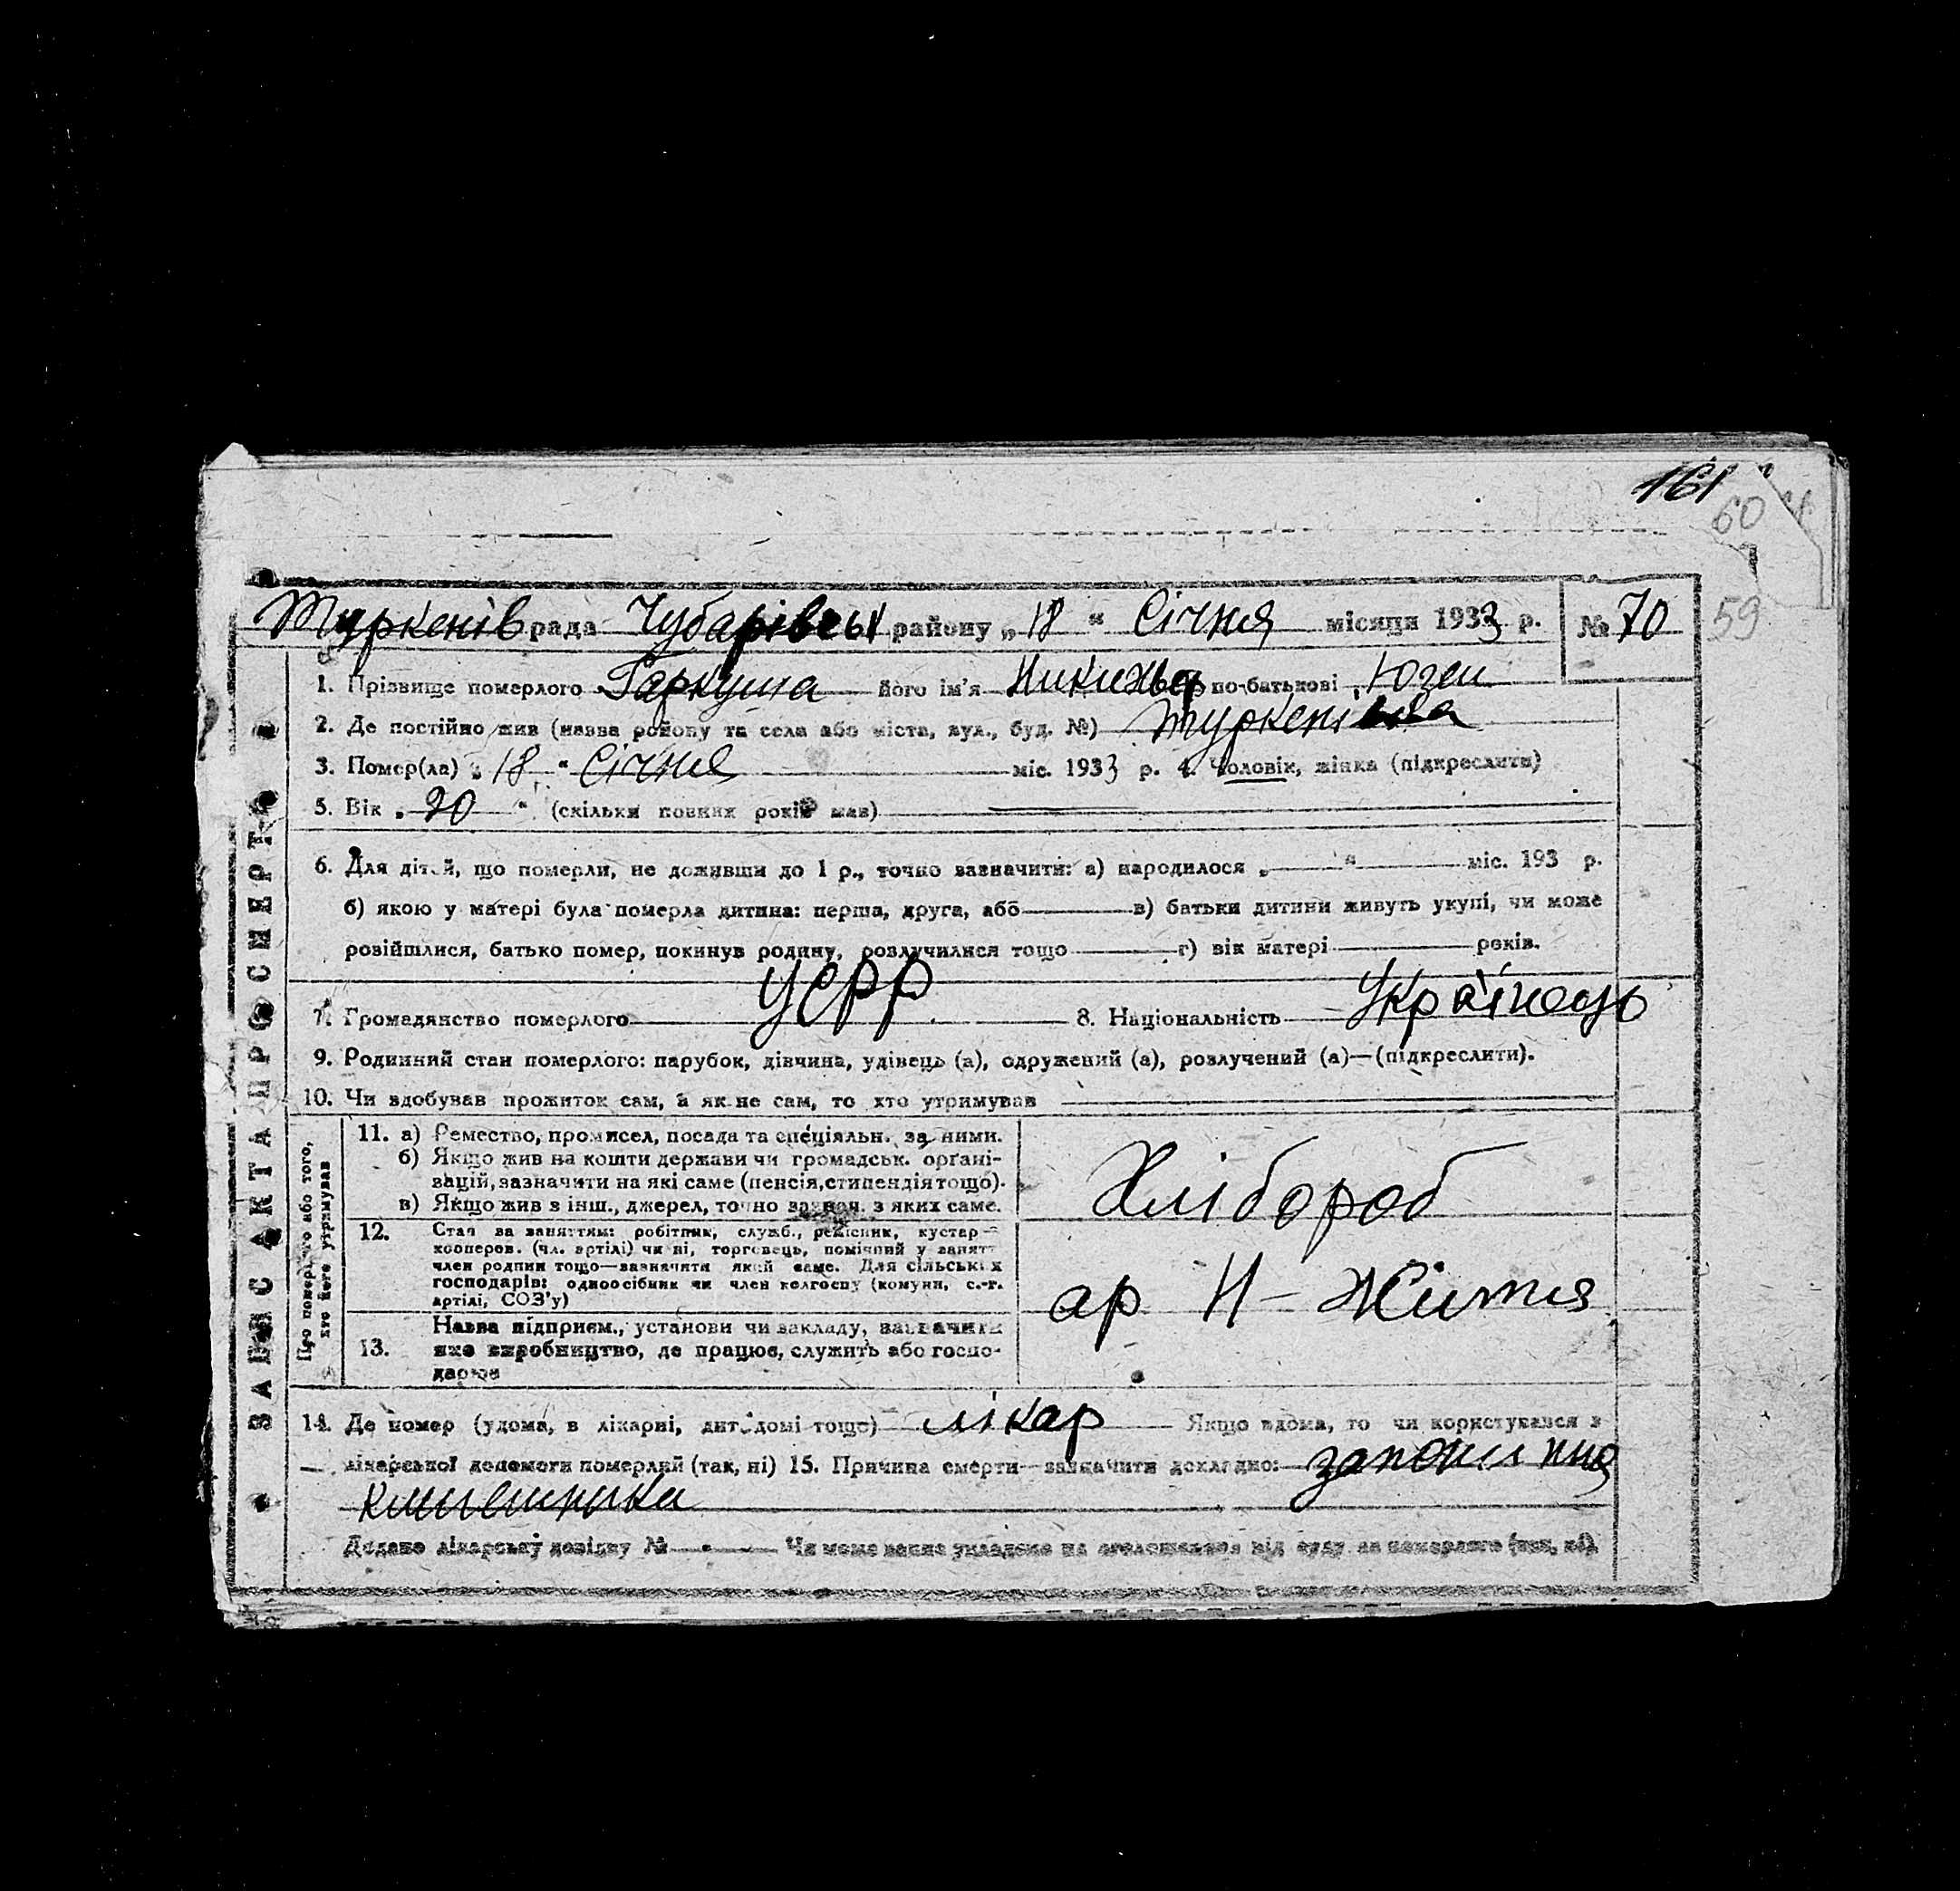 161
60
59
Туркенів рада Чубарівськ району „ 18 “ Січня місяця 1933 р. № 70
1. Прізвище померлого Гаркуша його ім'я по-батькові Юхем
2. Де постійно жив (назва району та села або міста, вул., буд. №) Туркенівка
3. Помер(ла) „ 18 “ Січня міс. 1933 р. 4. Чоловік, жінка (підкреслити)
5. Вік „ 20 “ (скільки повних років мав)
6. Для дітей, що померли, не доживши до 1 р., точно зазначити: а) народилося „ “ міс. 193 р.
б) якою у матері була померла дитина: перша, друга, або в) батьки дитини живуть укупі, чи може
розійшлися, батько помер, покинув родину, розлучилися тощо г) вік матері років.
7. Громадянство померлого УСРР 8. Національність Українець
9. Родинний стан померлого: парубок, дівчина, удівець (а), одружений (а), розлучений (а)—(підкреслити).
10. Чи здобував прожиток сам, а як не сам, то хто утримував
ЗАПИС АКТА ПРО СМЕРТЬ
Про померлого або того,
хто його утримував
11. а) Ремество, промисел, посада та спеціяльн. за ними.
б) Якщо жив на кошти держави чи громадськ. органі-
зацій, зазначити на які саме (пенсія, стипендія тощо).
в) Якщо жив з інш., джерел, точно зазнач. з яких саме.
Хлібороб
12. Стан за заняттям: робітник, служб., ремісник, кустар
кооперов. (чл. артілі) чи ні, торговець, помічний у занятт
член родини тощо—зазначити який саме. Для сільських
господарів: одноосібник чи член колгоспу (комуни, с.-г.
артілі, СОЗ'у)
ар Н - Життя
13. Назва підприєм., установи чи закладу, зазначити
яке виробництво, де працює, служить або госпо-
дарює
14. Де помер (удома, в лікарні, дит. домі тощо) лікар Якщо вдома, то чи користувався з
лікарської допомоги померлий (так, ні) 15. Причина смерти зазначити докладно:
Додано лікарську довідку № Чи може запис укладено на оголошення від суду за померлого (так, ні).